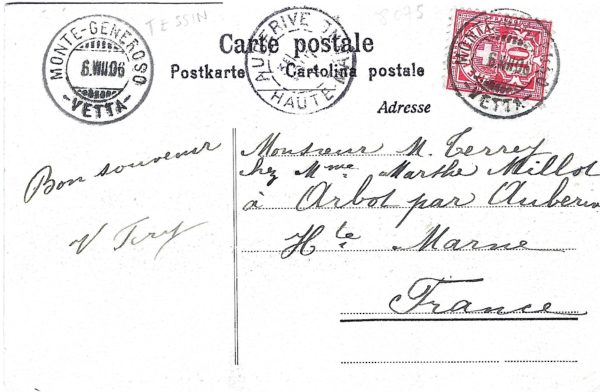 TESSIN
MONTE-GENEROSO
6.VIII.06
-VETTA-
Carte postale
Postkarte Cartolina postale
Adresse
AUBERIVE
HAUTE-MARNE
10
6.VIII.06
-VETTA-
Bon souvenir
Monsieur M. Terrey
chez Mme Marthe Millot
à Arbot par Auberive
Hte Marne
France